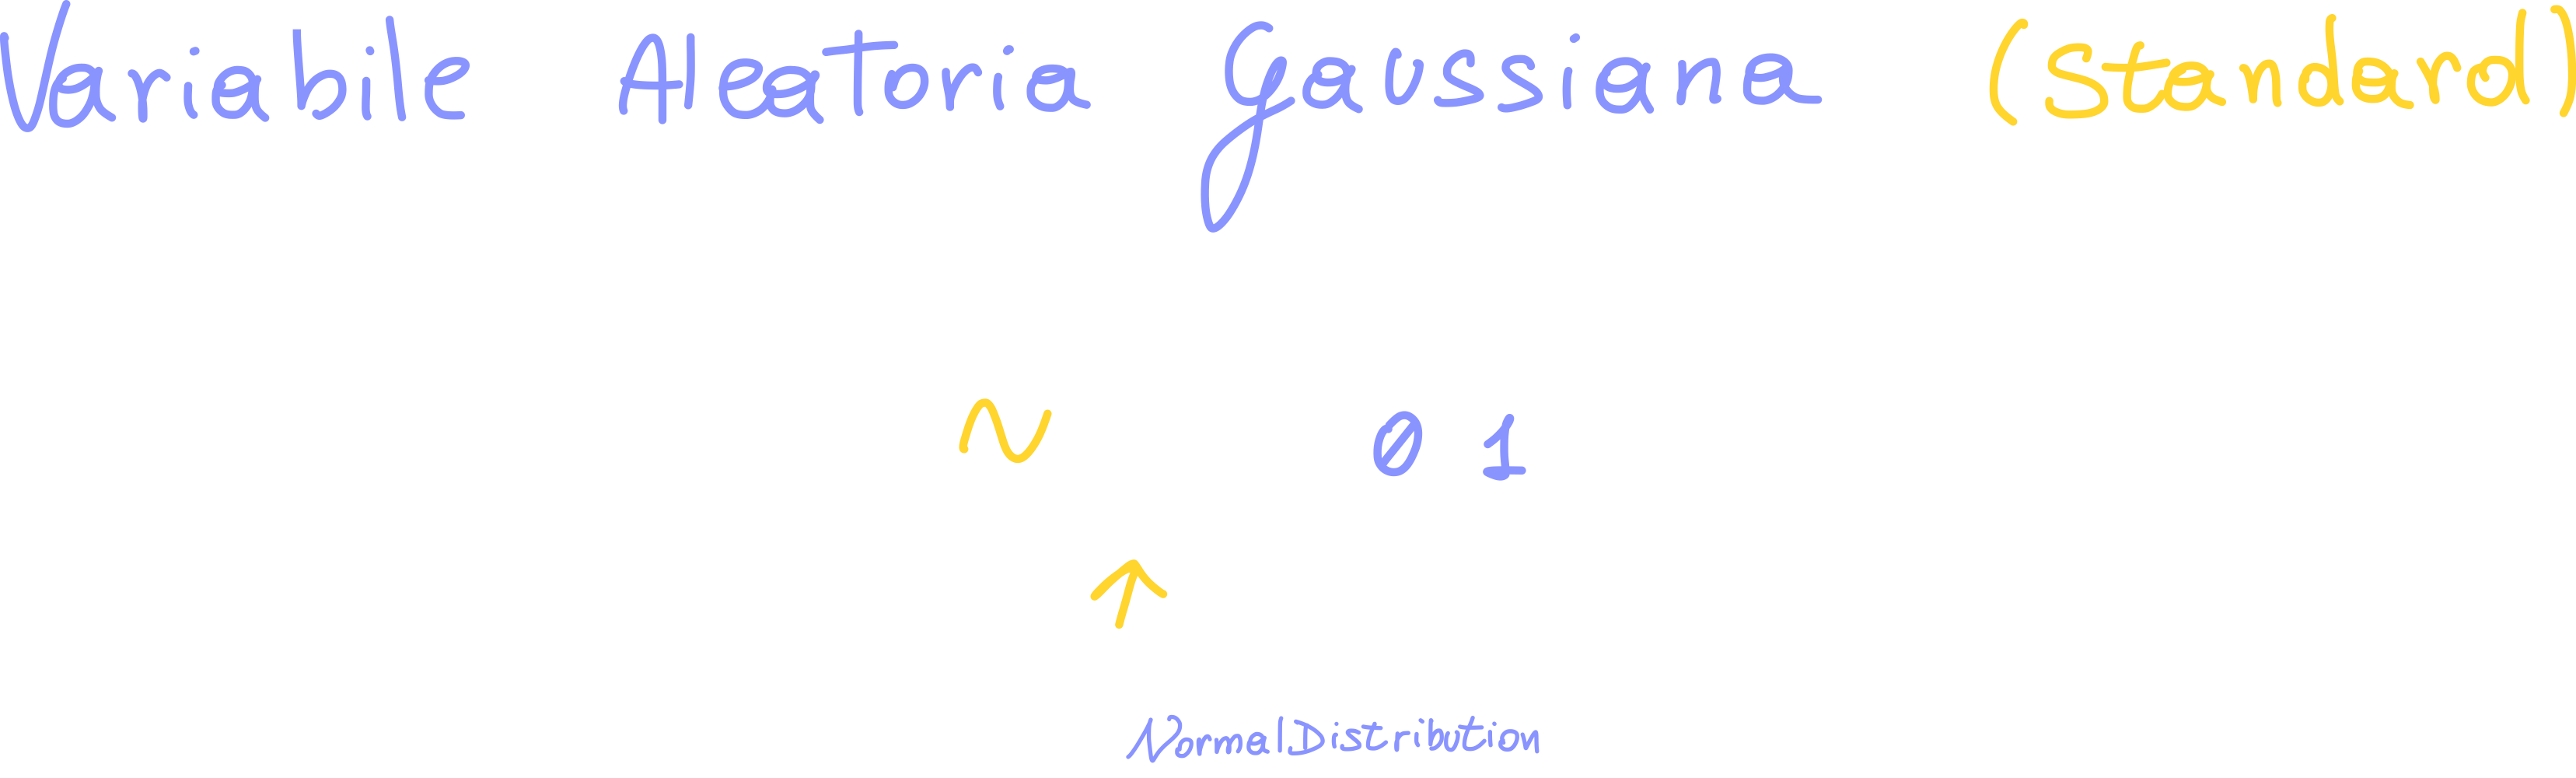 Variabile Aleatoria Gaussiana (Standard)
~ 0 1
↑
Normal Distribution